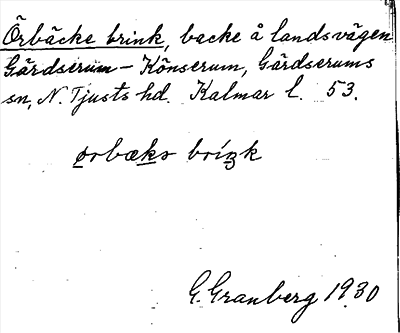 Örbäcke brink, backe å landsvägen
Gärdserum - Könserum, Gärdserums
sn, N. Tjusts hd. Kalmar l. 53.
ørbæks briŋk
G. Granberg 1930